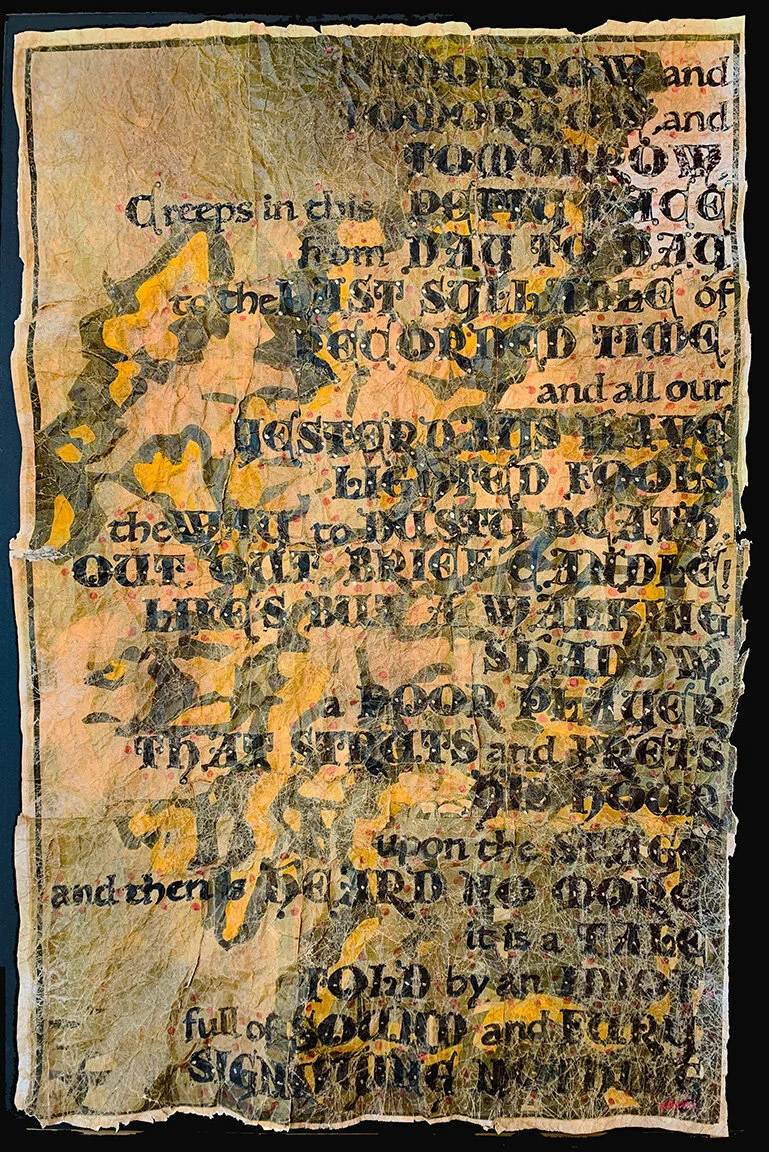 TOMORROW and
TOMORROW, and
TOMORROW
Creeps in this PETTY PACE
from DAY TO DAY
to the LAST SYLLABLE of
RECORDED TIME
and all our
YESTERDAYS HAVE
LIGHTED FOOLS
the WAY to DUSTY DEATH.
OUT, OUT, BRIEF CANDLE!
LIFE'S BUT A WALKING
SHADOW,
a POOR PLAYER
THAT STRUTS and FRETS
HIS HOUR
upon the STAGE
and then is HEARD NO MORE
it is a TALE
TOLD by an IDIOT
full of SOUND and FURY
SIGNIFYING NOTHING